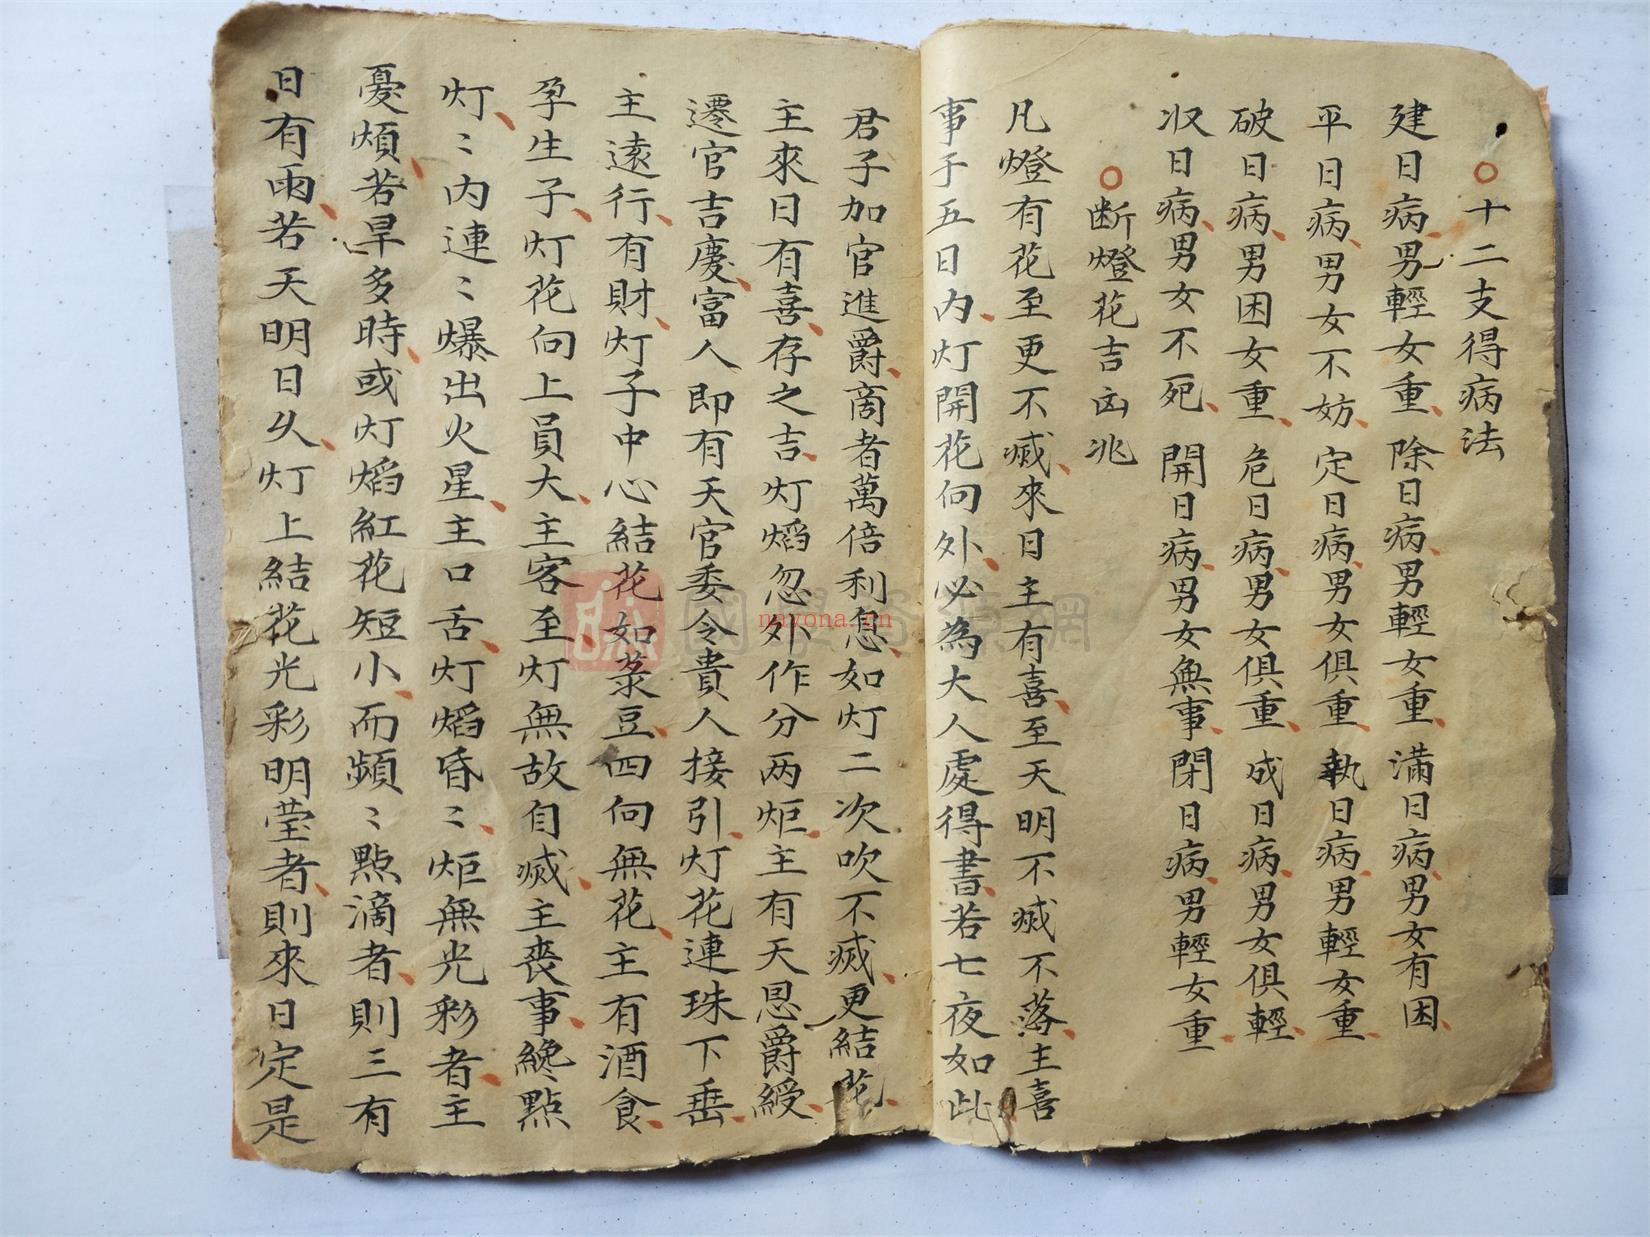 十二支得病法
建日病男輕女重 除日病男輕女重 滿日病男女有困
平日病男女不妨 定日病男女俱重 執日病男輕女重
破日病男困女重 危日病男女俱重 成日病男女俱輕
收日病男女不死 開日病男女無事 閉日病男輕女重
断燈花吉凶兆
凡燈有花至更不滅來日主有喜至天明不滅不落主喜
事于五日内灯開花向外必為大人處得書若七夜如此
君子加官進爵商者萬倍利息如灯二次吹不滅更結花
主來日有喜存之吉灯熖忽外作分两炬主有天恩爵綬
遷官吉慶富人即有天官委令貴人接引灯花連珠下垂
主遠行有財灯子中心結花如菉豆四向無花主有酒食
孕生子灯花向上員大主客至灯無故自滅主喪事纔點
灯〻内連〻爆出火星主口舌灯熖昏〻炬無光彩者主
憂煩若旱多時或灯熖紅花短小而頻〻點滴者則三有
日有雨若天明日久灯上結花光彩明莹者則來日定是
國學 網
nayona.cn